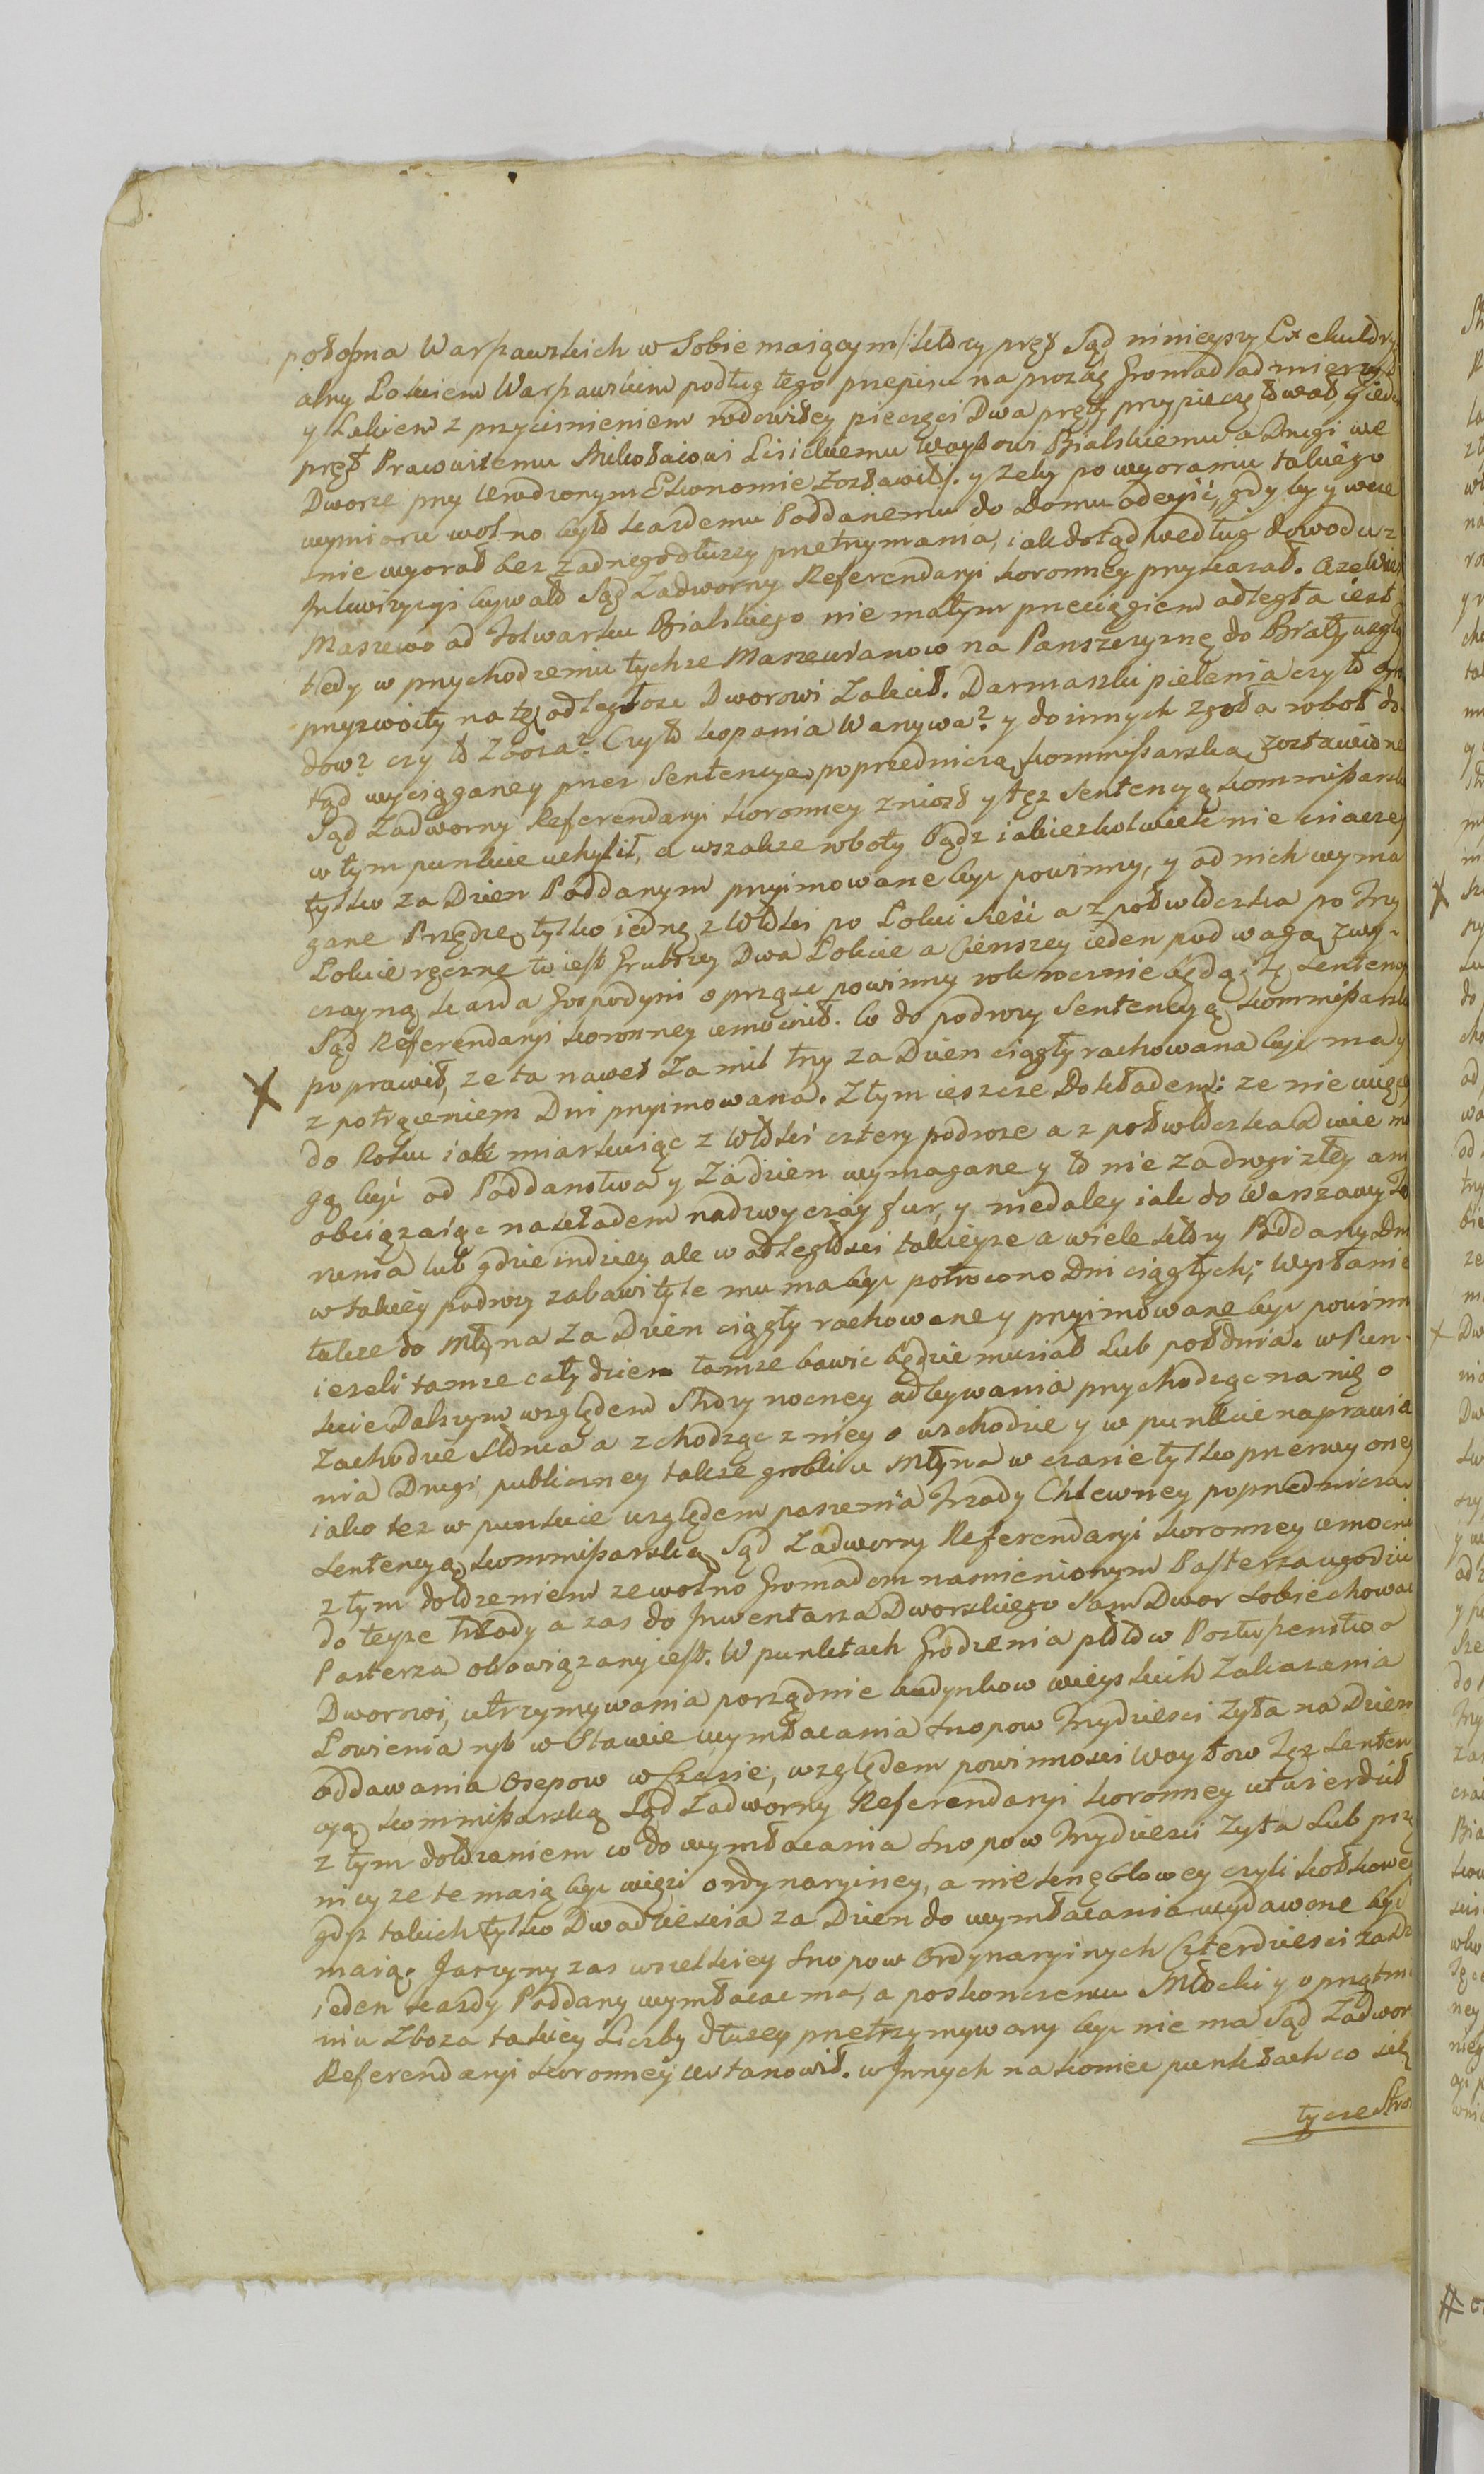 połosma Warszawskich w Sobie maiącym /: ktory pręt Sąd ninieyszy Exekutory
alny Łokciem Warszawskim podług tego przepisu na prozbę Gromad odmierzył
y Lakiem z przycisnieniem rodowitey pieczęci Dwa pręty przypieczętował, y ieden
pręt Prawowitemu Mikołaiowi Lisickiemu Woytowi Bialskiemu a Drugi we
Dworze przy Urodzonym Ekonomie Zostawił :/. y Zeby po wyoraniu takiego
wymiaru wolno było kazdemu Poddanemu do domu odeyść, gdy by y wcze
snie wyorał bez zadnego dłuzey przetrzymania, iak dotąd według dowodu z
Inkwizycyi bywało Sąd Zadworny Referendaryi Koronney przykazał. A ze Wieś
Maszewo od Folwarku Bialskiego nie małym przeciągiem odległa iest
tedy w przychodzeniu tychze Maszewianow na Panszczyznę do Biały wzgląd
przyzwoity na tę odległosc Dworowi Zalecił. Darmaszki pielenia czy to ogro
dow? czy to Zboza? Czy to kopania Warzywa? y do innych zgoła robot do
tąd wyciąganey przez Sentencyą poprzedniczą Kommissarską zostawione
Sąd Zadworny Referendaryi Koronney zniosł y tęz Sentencyą Kommissarską
w tym punkcie uchylił, a wszakze roboty bądz iakiezkolwiek nie inaczey
tylko za Dzien Poddanym przyimowane byc powinny, y od nich wyma
gane Przędzę tylko iednę z Włoki po Łokci Sześć a z połwłoczka po Trzy
Łokcie ręczne to iest Grubszey Dwa Łokcie a Cienszey ieden pod wagą zwy-
czayną kazda Gospodyni oprząsc powinny rok rocznie będą; Tę Sentency
Sąd Referendaryi Koronney umocnił. Co do podrozy Sentencyą Kommissarsk
poprawił, ze ta nawet Za mil trzy za Dzien ciągły rachowana byc ma y
z potrąceniem Dni przyimowana. Z tym ieszcze Dokładem: ze nie więcey
do Roku iak miarkuiąc z Włoki cztery podroze a z połwłoczka Dwie mo
gą byc od Poddanstwa y Za dzien wymagane y to nie za drogi złey ani
obciązaiąc nakładem nadzwyczay fur, y niedaley iak do Warszawy To
runia lub gdzie indziey ale w odległosci takieyze a wiele ktory Poddany Dni
w takiey podrozy zabawi tyle mu ma byc potrocono Dni ciągłych; Wysłanie
takze do Młyna za Dzien ciągły rachowane y przyimowane byc powinn
iezeli tamze cały dzien tamze bawic będzie musiał Lub poł dnia. w Pun-
kcie Dalszym względem Strozy nocney odbywania przychodząc na nię o
Zachodzie Słonca a zchodząc z niey o wschodzie y w punkcie naprawia
nia Drogi publiczney takze grobli u Młyna w czasie tylko przerwy oney
iako tez w punkcie względem paszenia Trzody Chlewney poprzedniczą
Sentencyą Kommissarską Sąd Zadworny Referendaryi Koronney umocni
z tym dołozeniem ze wolno Gromadom namienionym Pasterza ugodzic
do teyze Trzody a zas do Inwentarza Dworskiego Sam Dwor Sobie chowac
Pasterza obowiązany iest. W punktach Grodzenia płotow Posłuszenstwo
Dworowi, utrzymywania porządnie budynkow wieyskich Zakazania
Łowienia ryb w Stawie wymłacania Snopow Trzydziesci Zyta na Dzien
oddawania Osepow w Czasie, względem powinnosci Woytow Tęz Senten
cyą Kommissarską Sąd Zadworny Referendaryi Koronney utwierdził
z tym dołozeniem co do wymłacania Snopow Trzydziesci Zyta Lub psze
nicy ze te maią byc więzi ordynaryiney, a nie kręblowey czyli kołkowey
gdyz takich tylko Dwadziescia za Dzien do wymłacania wydawone byc
maią. Jarzyny zas wszelkiey Snopow Ordynaryinych Czterdziesci za Dz
ieden kazdy Poddany wymłacac ma, a po skonczeniu Młocki y oprzątnie
niu Zboza takiey Liczby dłuzey przetrzymywany byc nie ma Sąd Zadwor
Referendaryi Koronney ustanowił. w Innych na koniec punktach co się
tycze Stro